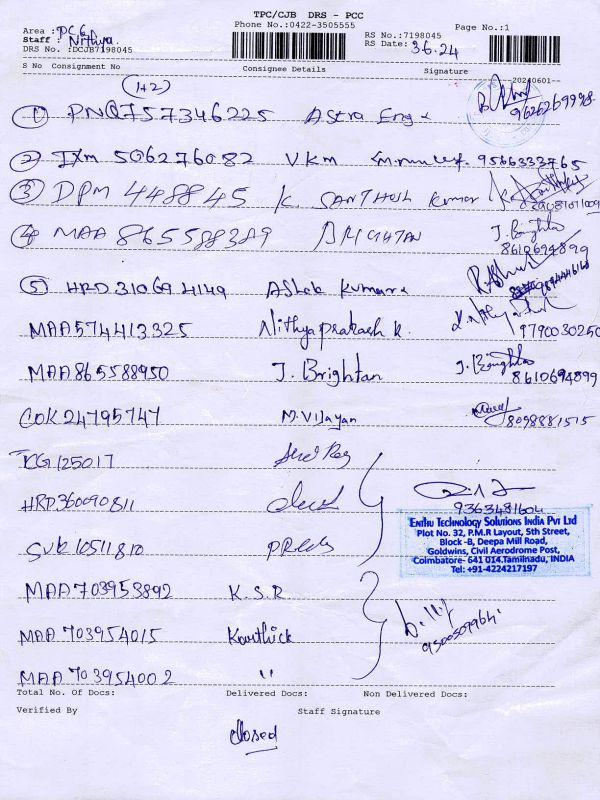 TPC/CJB DRS - PCC
Phone No.:0422-3505555
Page No.:1
Area : PCG
Staff : Nithya
DRS No. :DCJB7198045
RS No.:7198045
RS Date: 3.6.24
S No Consignment No Consignee Details Signature
20240601--
(1+2)
① PNQ757346225 Astra Eng 9626269998
② IXM 506276082 V.K.M 9566333765
③ DPM 448845 K. SANTHOSH Kumar
④ MAA 865588389 BRIGHTAN J. Brighton 8610694899
⑤ HRD310694149 Ashok Kumar
MAA574413325 Nithyaprakash K. 9790030250
MAA865588950 J. Brightan J. Brighton 8610694899
COK24795747 M. Vijayan 8098881515
KG125017
HRD360090811 9363481604
SUR10511810
Enthu Technology Solutions India Pvt Ltd
Plot No. 32, P.M.R Layout, 5th Street,
Block -B, Deepa Mill Road,
Goldwins, Civil Aerodrome Post,
Coimbatore- 641 014.Tamilnadu, INDIA
Tel: +91-4224217197
MAA703953892 K.S.R
MAA703954015 Karthick 9500509964
MAA703954002 "
Total No. Of Docs: Delivered Docs: Non Delivered Docs:
Verified By Staff Signature
closed